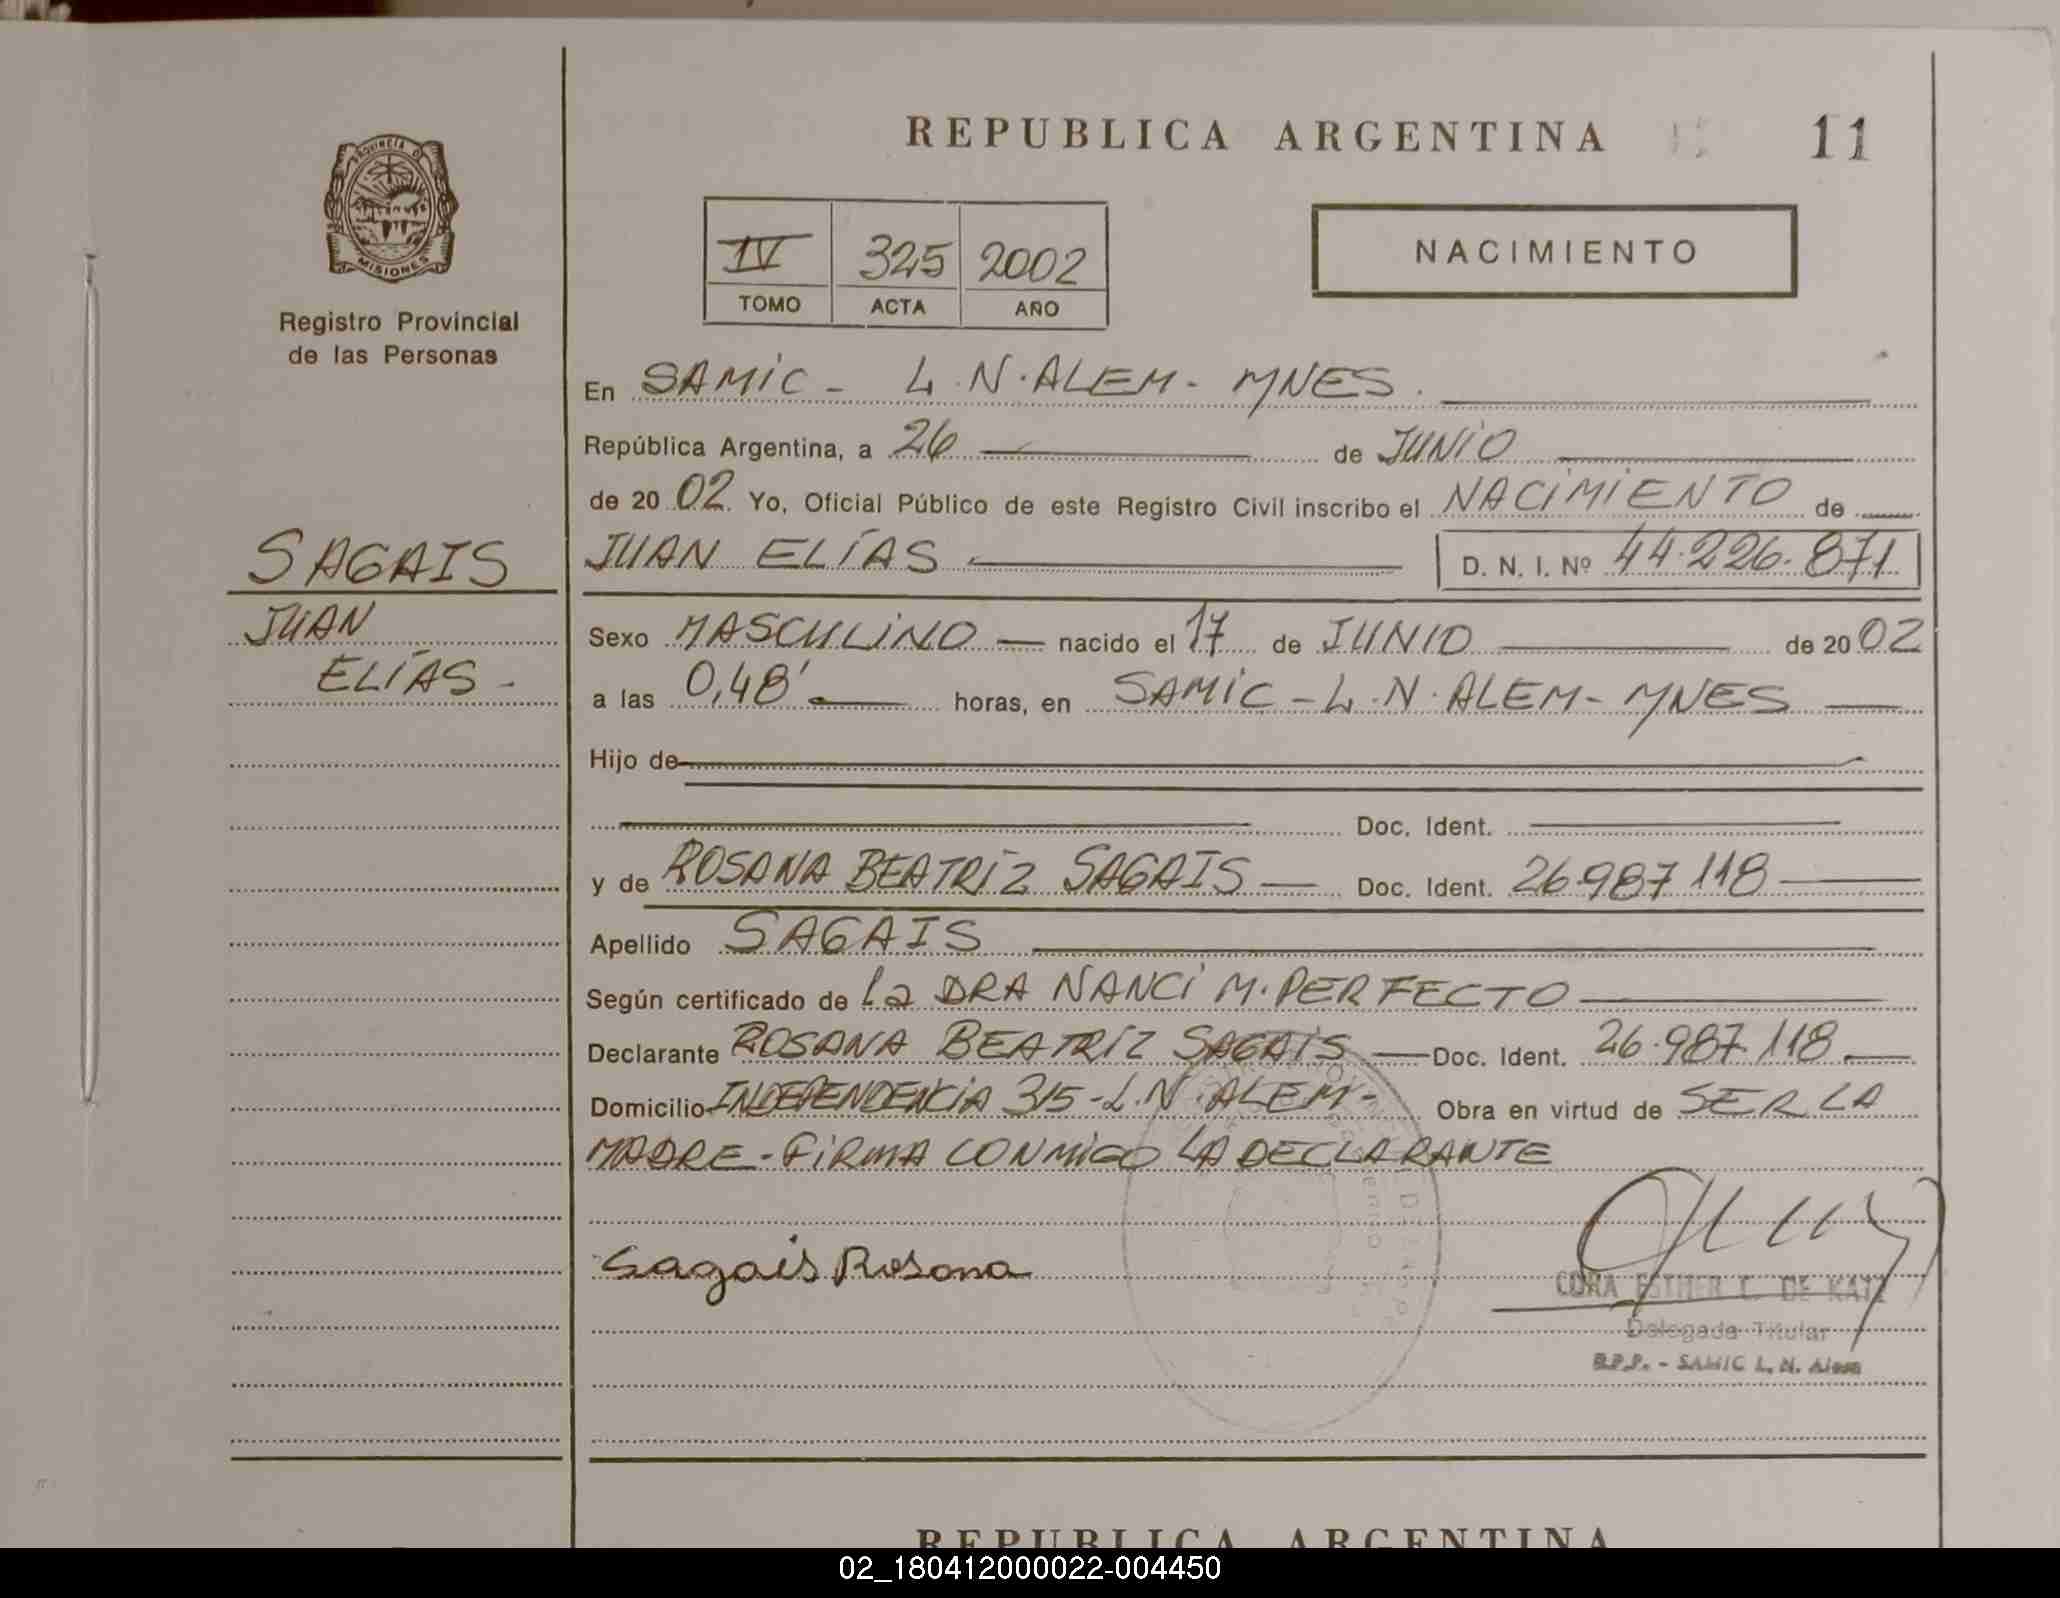 REPUBLICA ARGENTINA 11
PROVINCIA D
MISIONES
Registro Provincial
de las Personas
IV 325 2002
TOMO ACTA AÑO
NACIMIENTO
En SAMIC - L.N.ALEM - MNES.
República Argentina, a 26 de JUNIO
de 20 02. Yo, Oficial Público de este Registro Civil inscribo el NACIMIENTO de
SAGAIS
JUAN
ELÍAS -
JUAN ELÍAS D. N. I. Nº 44.226.871
Sexo MASCULINO nacido el 17 de JUNIO de 20 02
a las 0,48' horas, en SAMIC - L.N. ALEM - MNES
Hijo de
Doc. Ident.
y de ROSANA BEATRIZ SAGAIS Doc. Ident. 26.987.118
Apellido SAGAIS
Según certificado de La DRA NANCI M. PERFECTO
Declarante ROSANA BEATRIZ SAGAIS Doc. Ident. 26.987.118
Domicilio INDEPENDENCIA 315 - L.N. ALEM - Obra en virtud de SER LA
MADRE - FIRMA CONMIGO LA DECLARANTE
Sagais Rosana
CORA ESTHER L. DE KATZ
Delegada Titular
R.P.P. - SAMIC L. N. Alem
REPUBLICA ARGENTINA
02_180412000022-004450